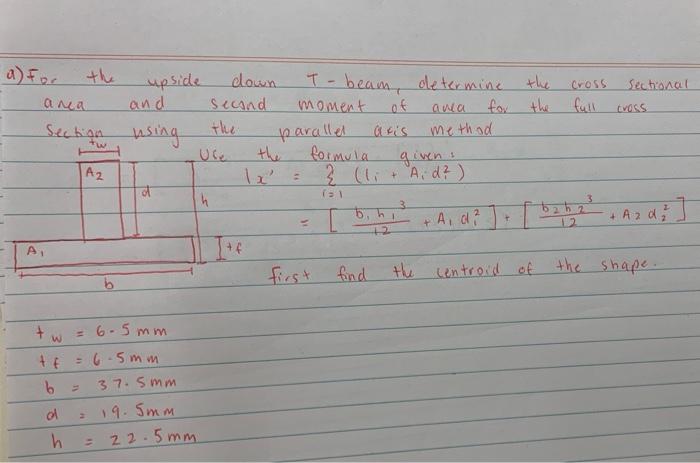 a) For the upside down T-beam, determine the cross sectional
area and second moment of area for the full cross
section using the parallel axis method
Use the formula given:
Ix' = Σ (Ii + Ai di²)
i=1
= [ b1 h1³ / 12 + A1 d1² ] + [ b2 h2³ / 12 + A2 d2² ]
First find the centroid of the shape.
tw
A2
d
h
A1
tf
b
tw = 6.5mm
tf = 6.5mm
b = 37.5mm
d = 19.5mm
h = 22.5mm